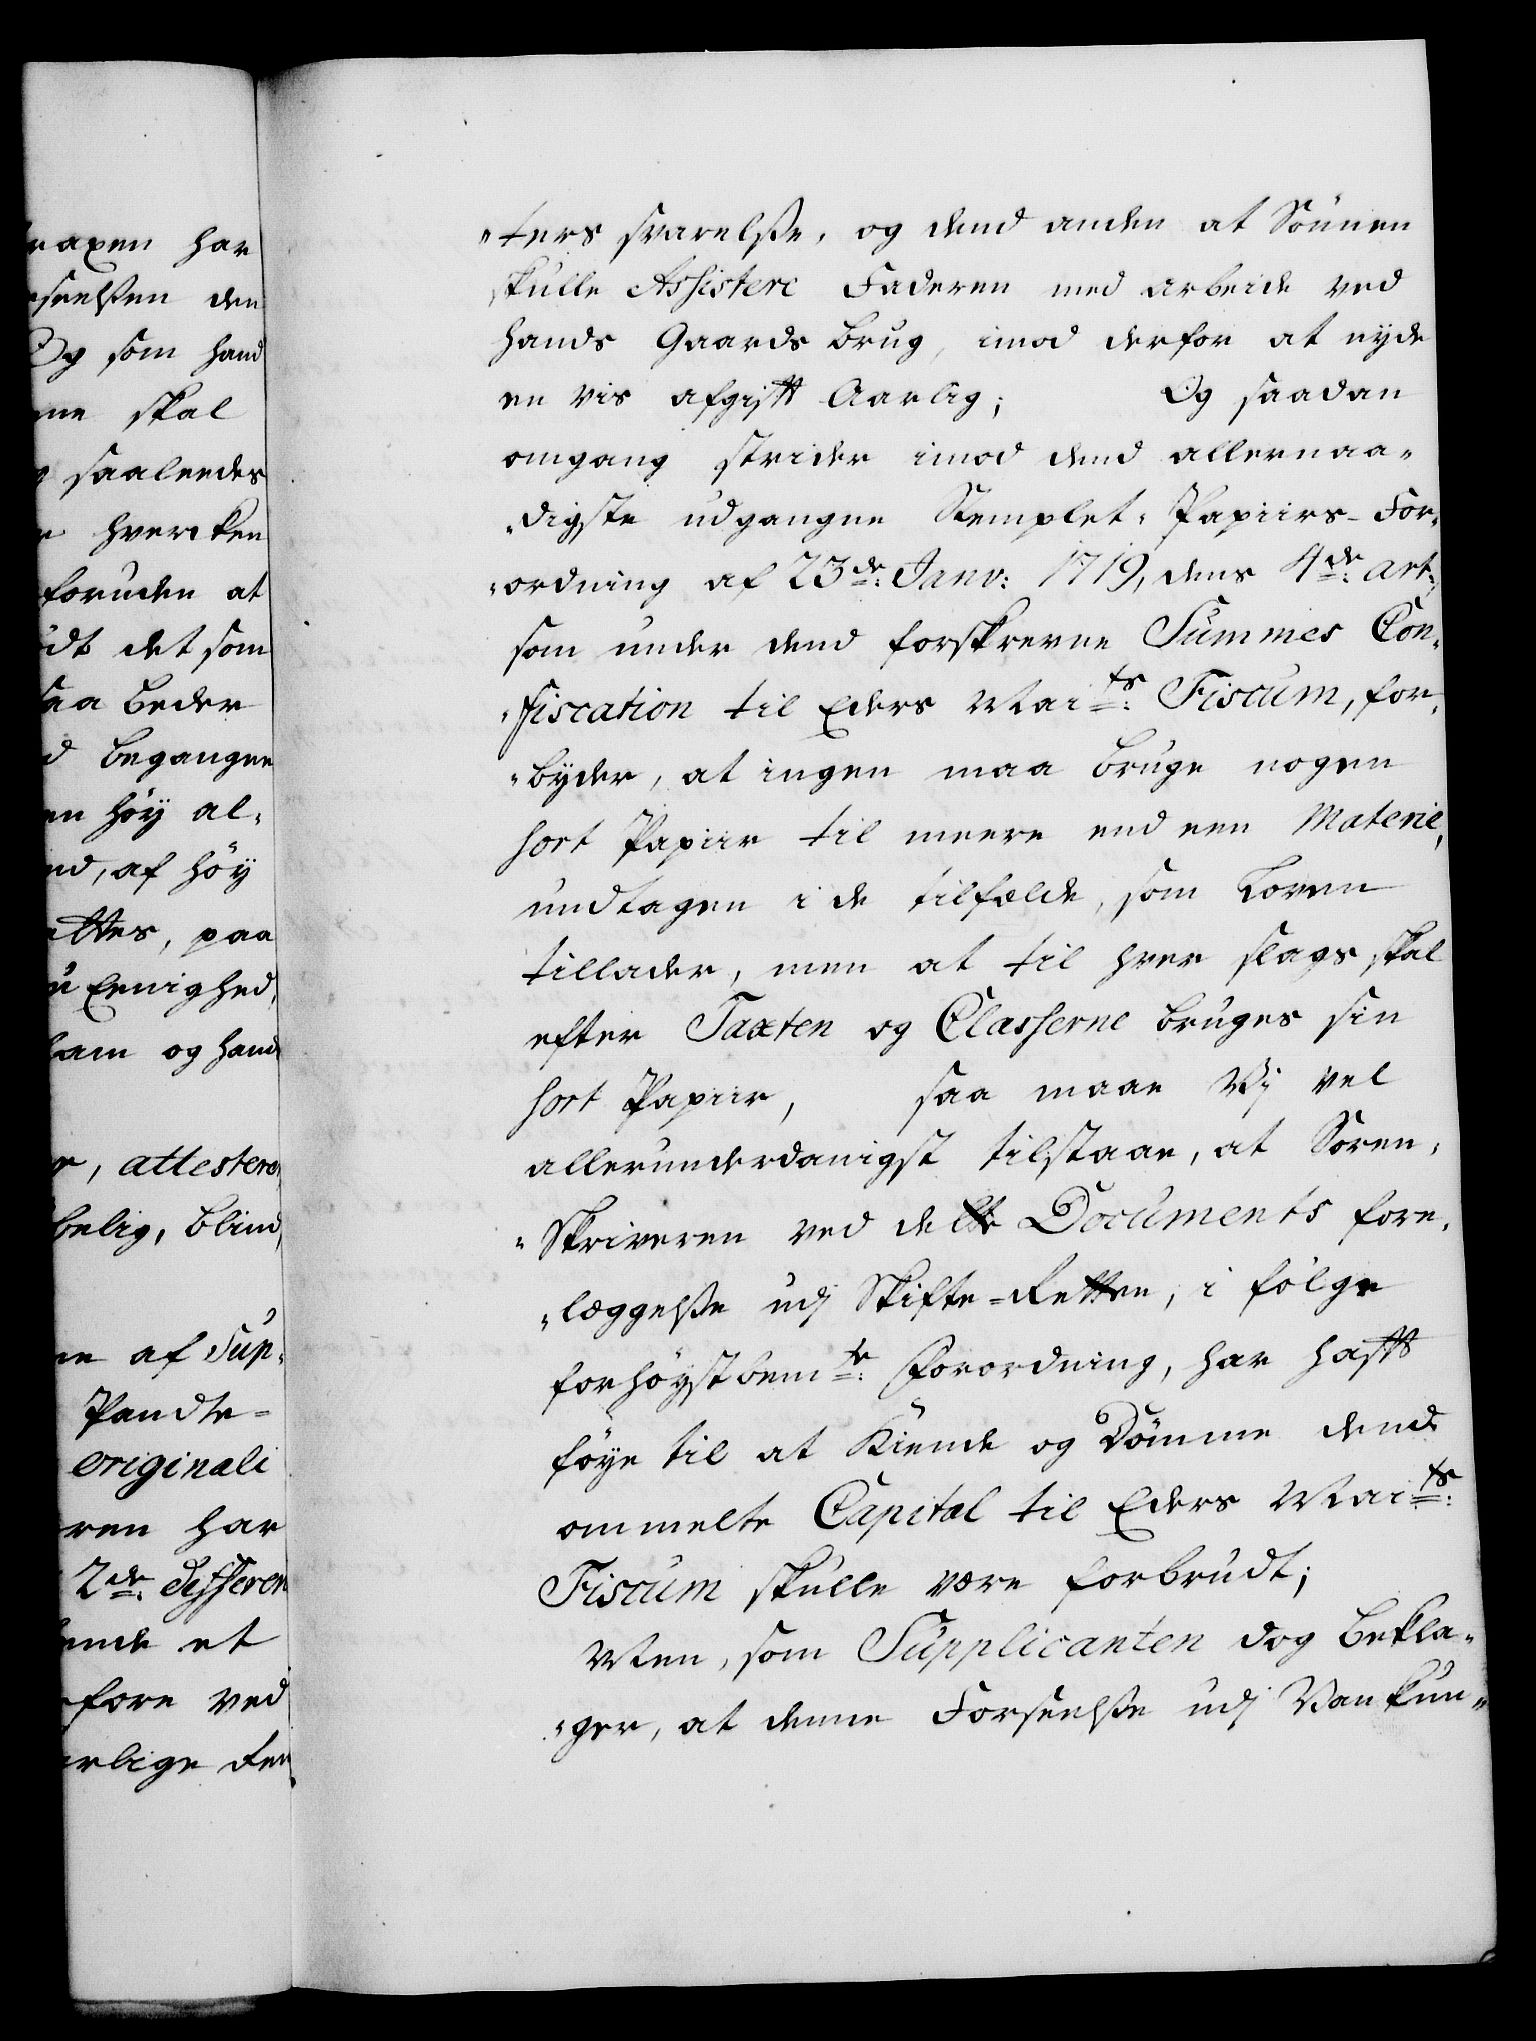 raxen har
rseelsen den
Og som hand
ne skal
saaleedes
hvercken
foruden at
idt det som
saa beder
d begangen
en höy al-
nd, af höy
ettes, paa
u Eenighed,
ham og hand
r, attestere
belig, blind,
ne af Sup-
Pandte-
originali
ren har
2de: differen
ende et
fore ved
rlige Ren
"ters svarelse, og dend anden at Sönnen
skulle Assistere Faderen med arbeide ved
hands Gaards brug, imod derfor at nyde
en vis afgift Aarlig; Og saadan
omgang strider imod dend allernaa-
"digste udgangne Stemplet-Papiirs-For-
"ordning af 23de: Janv: 1719, dens 4de: art:
som under dend forskrevne Summes Con-
"fiscation til Eders Maits: Fiscum, for-
"byder, at ingen maa bruge nogen
sort Papiir til meere end een Materie,
undtagen i de tilfælde, som Loven
tillader, men at til hver slags skal
efter Taxten og Classerne bruges sin
sort Papiir, saa maae Vj vel
allerunderdanigst tilstaae, at Soren-
"Skriveren ved dette Documents fore-
"læggelse udj Skifte-Retten, i fölge
forhöystbemte: Forordning, har haft
föye til at Kiende og Dömme dend
ommelte Capital til Eders Maits:
Fiscum skulle være forbrudt;
Men, som Supplicanten dog bekla-
"ger, at denne Forseelse udj Vankun-